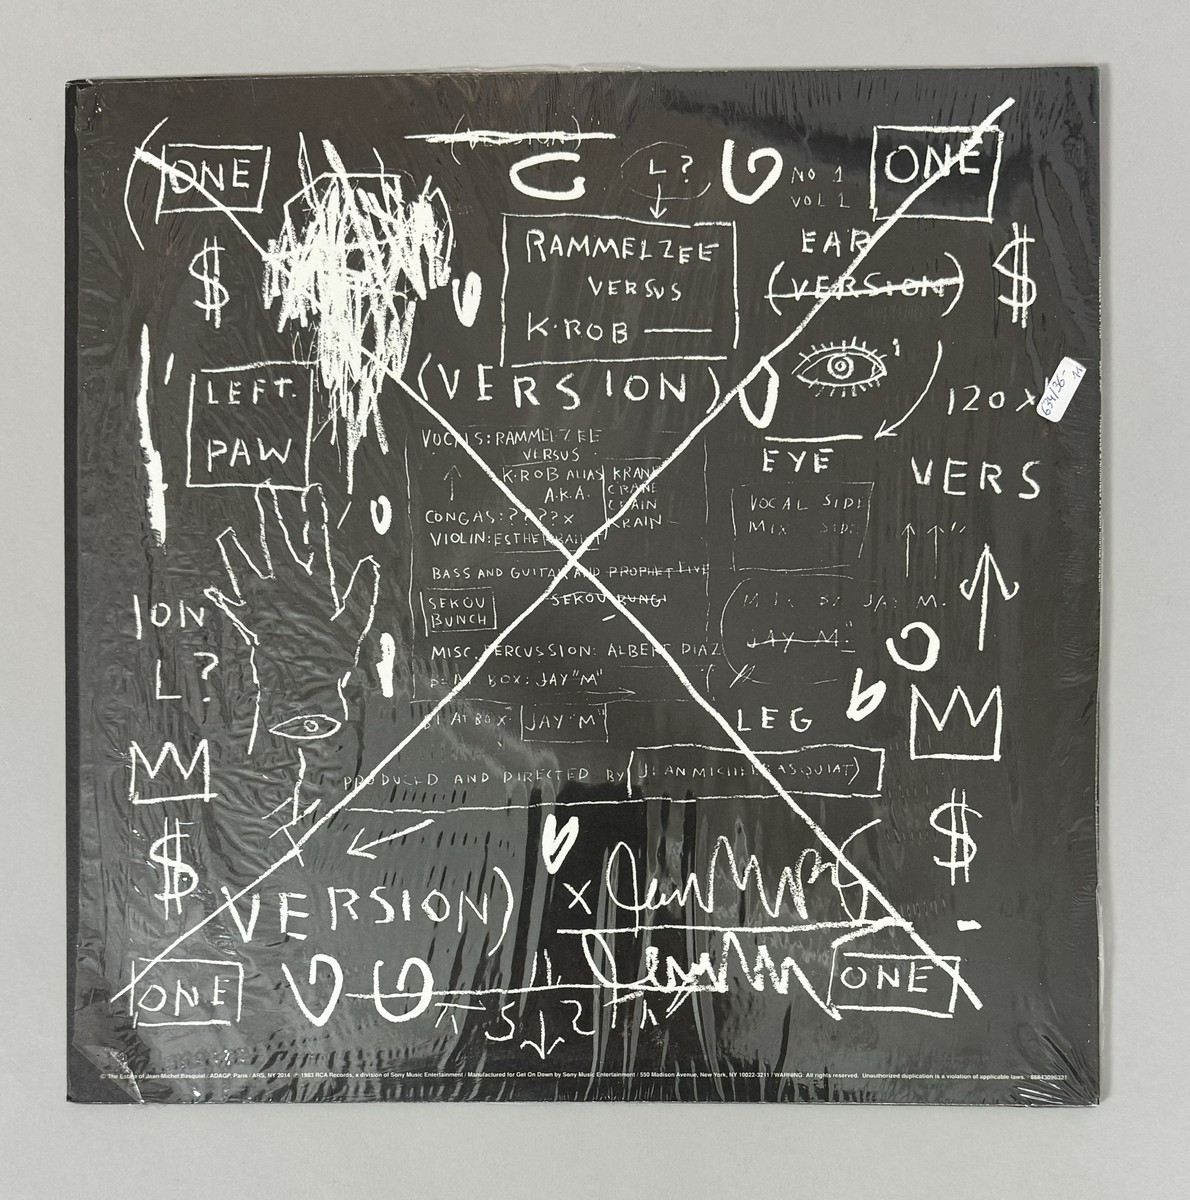 ONE
L?
NO 1
VOL 1
ONE
RAMMELZEE
VERSUS
K·ROB
EAR
(VERSION)
$
$
LEFT
PAW
(VERSION)
EYE
120 X
VERS
VOCALS: RAMMELZEE
VERSUS
K·ROB ALIAS KRANE
A.K.A. CRANE
CHAIN
KRAIN
CONGAS: ????X
VIOLIN:
BASS AND GUITAR AND PROPHET FIVE
SEKOU
BUNCH
MISC. PERCUSSION: ALBERT DIAZ
BOX: JAY "M"
BEATBOX: JAY "M"
VOCAL SIDE
MIX SIDE
JAY M."
ION
L?
LEG
PRODUCED AND DIRECTED BY JEAN MICHEL BASQUIAT)
$
$
VERSION)
X
ONE
ONE
© The Estate of Jean-Michel Basquiat / ADAGP, Paris / ARS, NY 2014 ℗ 1983 RCA Records, a division of Sony Music Entertainment / Manufactured for Get On Down by Sony Music Entertainment / 550 Madison Avenue, New York, NY 10022-3211 / WARNING: All rights reserved. Unauthorized duplication is a violation of applicable laws. / 88843096321